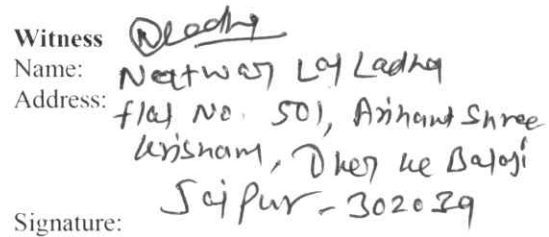 Witness
Name: Natwar Lal Ladha
Address: flat No. 501, Arihant Shree
Krishnam, Dher ke Balaji
Jaipur - 302039
Signature: